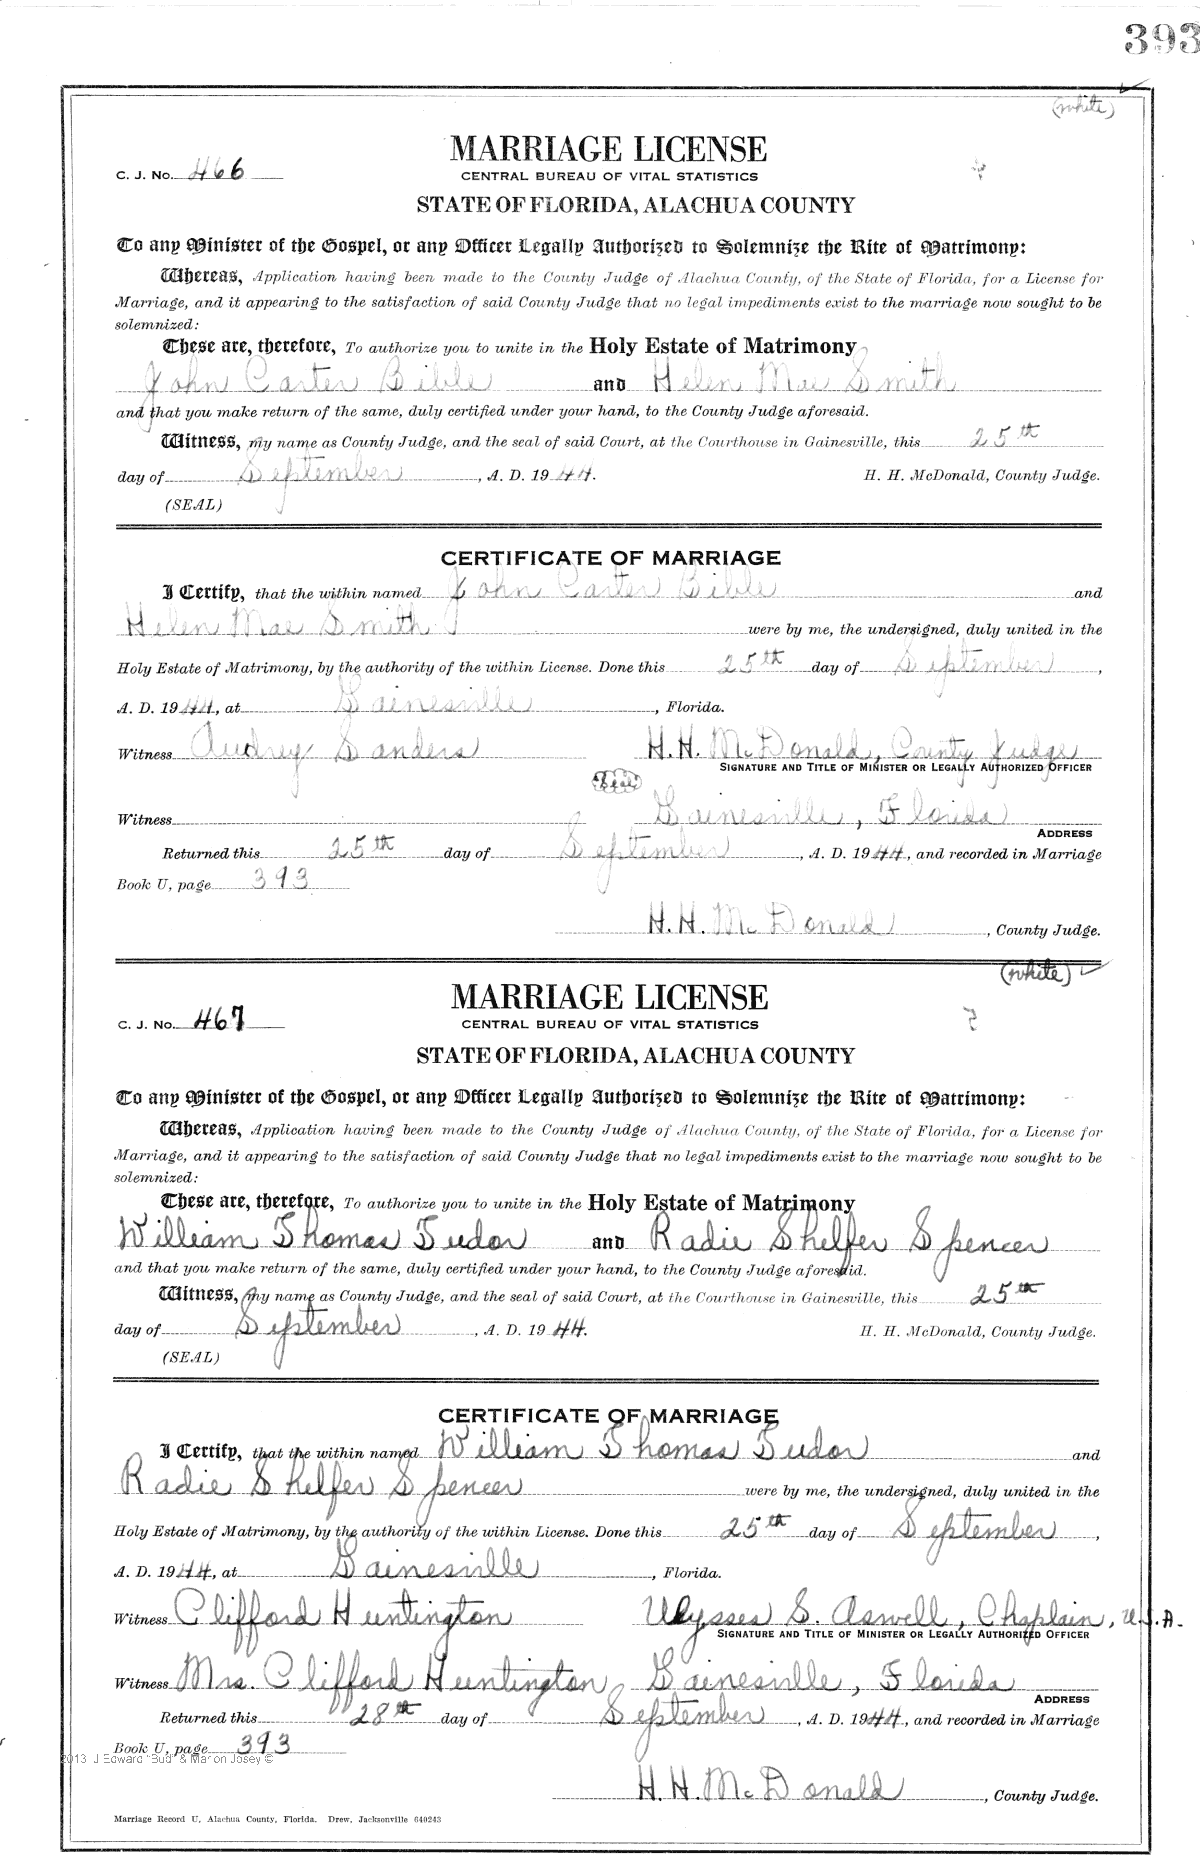 393
(white)
MARRIAGE LICENSE
C. J. No. 466
CENTRAL BUREAU OF VITAL STATISTICS
STATE OF FLORIDA, ALACHUA COUNTY
To any Minister of the Gospel, or any Officer Legally Authorized to Solemnize the Rite of Matrimony:
Whereas, Application having been made to the County Judge of Alachua County, of the State of Florida, for a License for
Marriage, and it appearing to the satisfaction of said County Judge that no legal impediments exist to the marriage now sought to be
solemnized:
These are, therefore, To authorize you to unite in the Holy Estate of Matrimony
John Carter Bible and Helen Mae Smith
and that you make return of the same, duly certified under your hand, to the County Judge aforesaid.
Witness, my name as County Judge, and the seal of said Court, at the Courthouse in Gainesville, this 25th
day of September, A. D. 1944. H. H. McDonald, County Judge.
(SEAL)
CERTIFICATE OF MARRIAGE
I Certify, that the within named John Carter Bible and
Helen Mae Smith were by me, the undersigned, duly united in the
Holy Estate of Matrimony, by the authority of the within License. Done this 25th day of September,
A. D. 1944, at Gainesville, Florida.
Witness Audrey Sanders H. H. McDonald, County Judge
SIGNATURE AND TITLE OF MINISTER OR LEGALLY AUTHORIZED OFFICER
Seal
Witness Gainesville, Florida
ADDRESS
Returned this 25th day of September, A. D. 1944, and recorded in Marriage
Book U, page 393
H. H. McDonald, County Judge.
(white)
MARRIAGE LICENSE
C. J. No. 467
CENTRAL BUREAU OF VITAL STATISTICS
STATE OF FLORIDA, ALACHUA COUNTY
To any Minister of the Gospel, or any Officer Legally Authorized to Solemnize the Rite of Matrimony:
Whereas, Application having been made to the County Judge of Alachua County, of the State of Florida, for a License for
Marriage, and it appearing to the satisfaction of said County Judge that no legal impediments exist to the marriage now sought to be
solemnized:
These are, therefore, To authorize you to unite in the Holy Estate of Matrimony
William Thomas Tudor and Radie Shelfer Spencer
and that you make return of the same, duly certified under your hand, to the County Judge aforesaid.
Witness, my name as County Judge, and the seal of said Court, at the Courthouse in Gainesville, this 25th
day of September, A. D. 1944. H. H. McDonald, County Judge.
(SEAL)
CERTIFICATE OF MARRIAGE
I Certify, that the within named William Thomas Tudor and
Radie Shelfer Spencer were by me, the undersigned, duly united in the
Holy Estate of Matrimony, by the authority of the within License. Done this 25th day of September,
A. D. 1944, at Gainesville, Florida.
Witness Clifford Huntington Ulysses S. Aswell, Chaplain, U.S.A.
SIGNATURE AND TITLE OF MINISTER OR LEGALLY AUTHORIZED OFFICER
Witness Mrs. Clifford Huntington Gainesville, Florida
ADDRESS
Returned this 28th day of September, A. D. 1944, and recorded in Marriage
Book U, page 393
2013 J Edward "Bud" & Marion Josey ©
H. H. McDonald, County Judge.
Marriage Record U, Alachua County, Florida. Drew, Jacksonville 640243